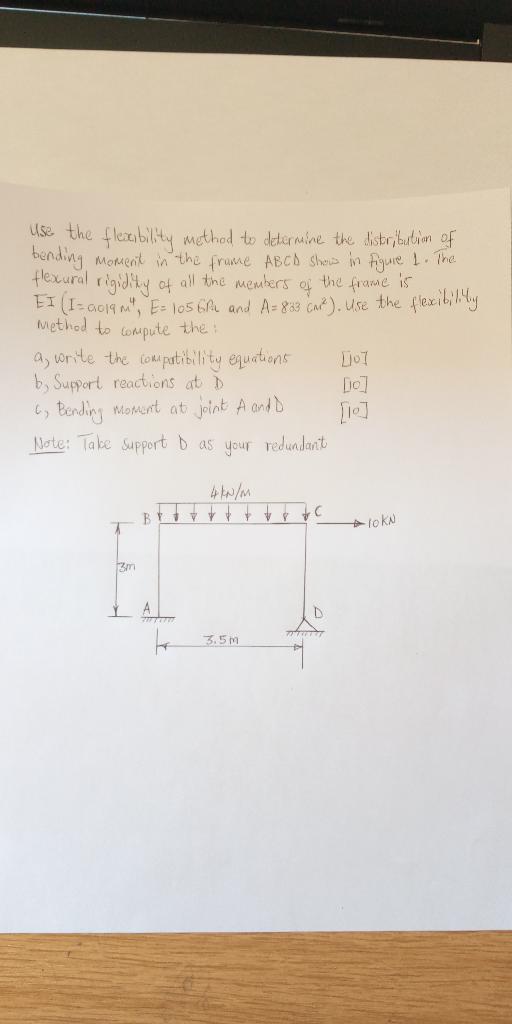 Use the flexibility method to determine the distribution of
bending moment in the frame ABCD show in figure 1. The
flexural rigidity of all the members of the frame is
EI (I=0.019 m⁴, E= 105 GPa and A=833 cm²). Use the flexibility
method to compute the:
a, write the compatibility equations [10]
b, Support reactions at D [10]
c, Bending moment at joint A and D [10]
Note: Take support D as your redundant
4 kN/m
B C 10 KN
3m
A D
3.5m